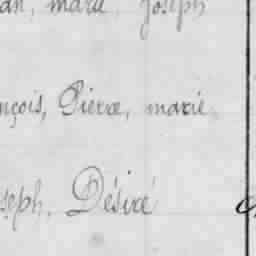 an, marie, Joseph
nçois, Pierre, marie,
seph, Désiré